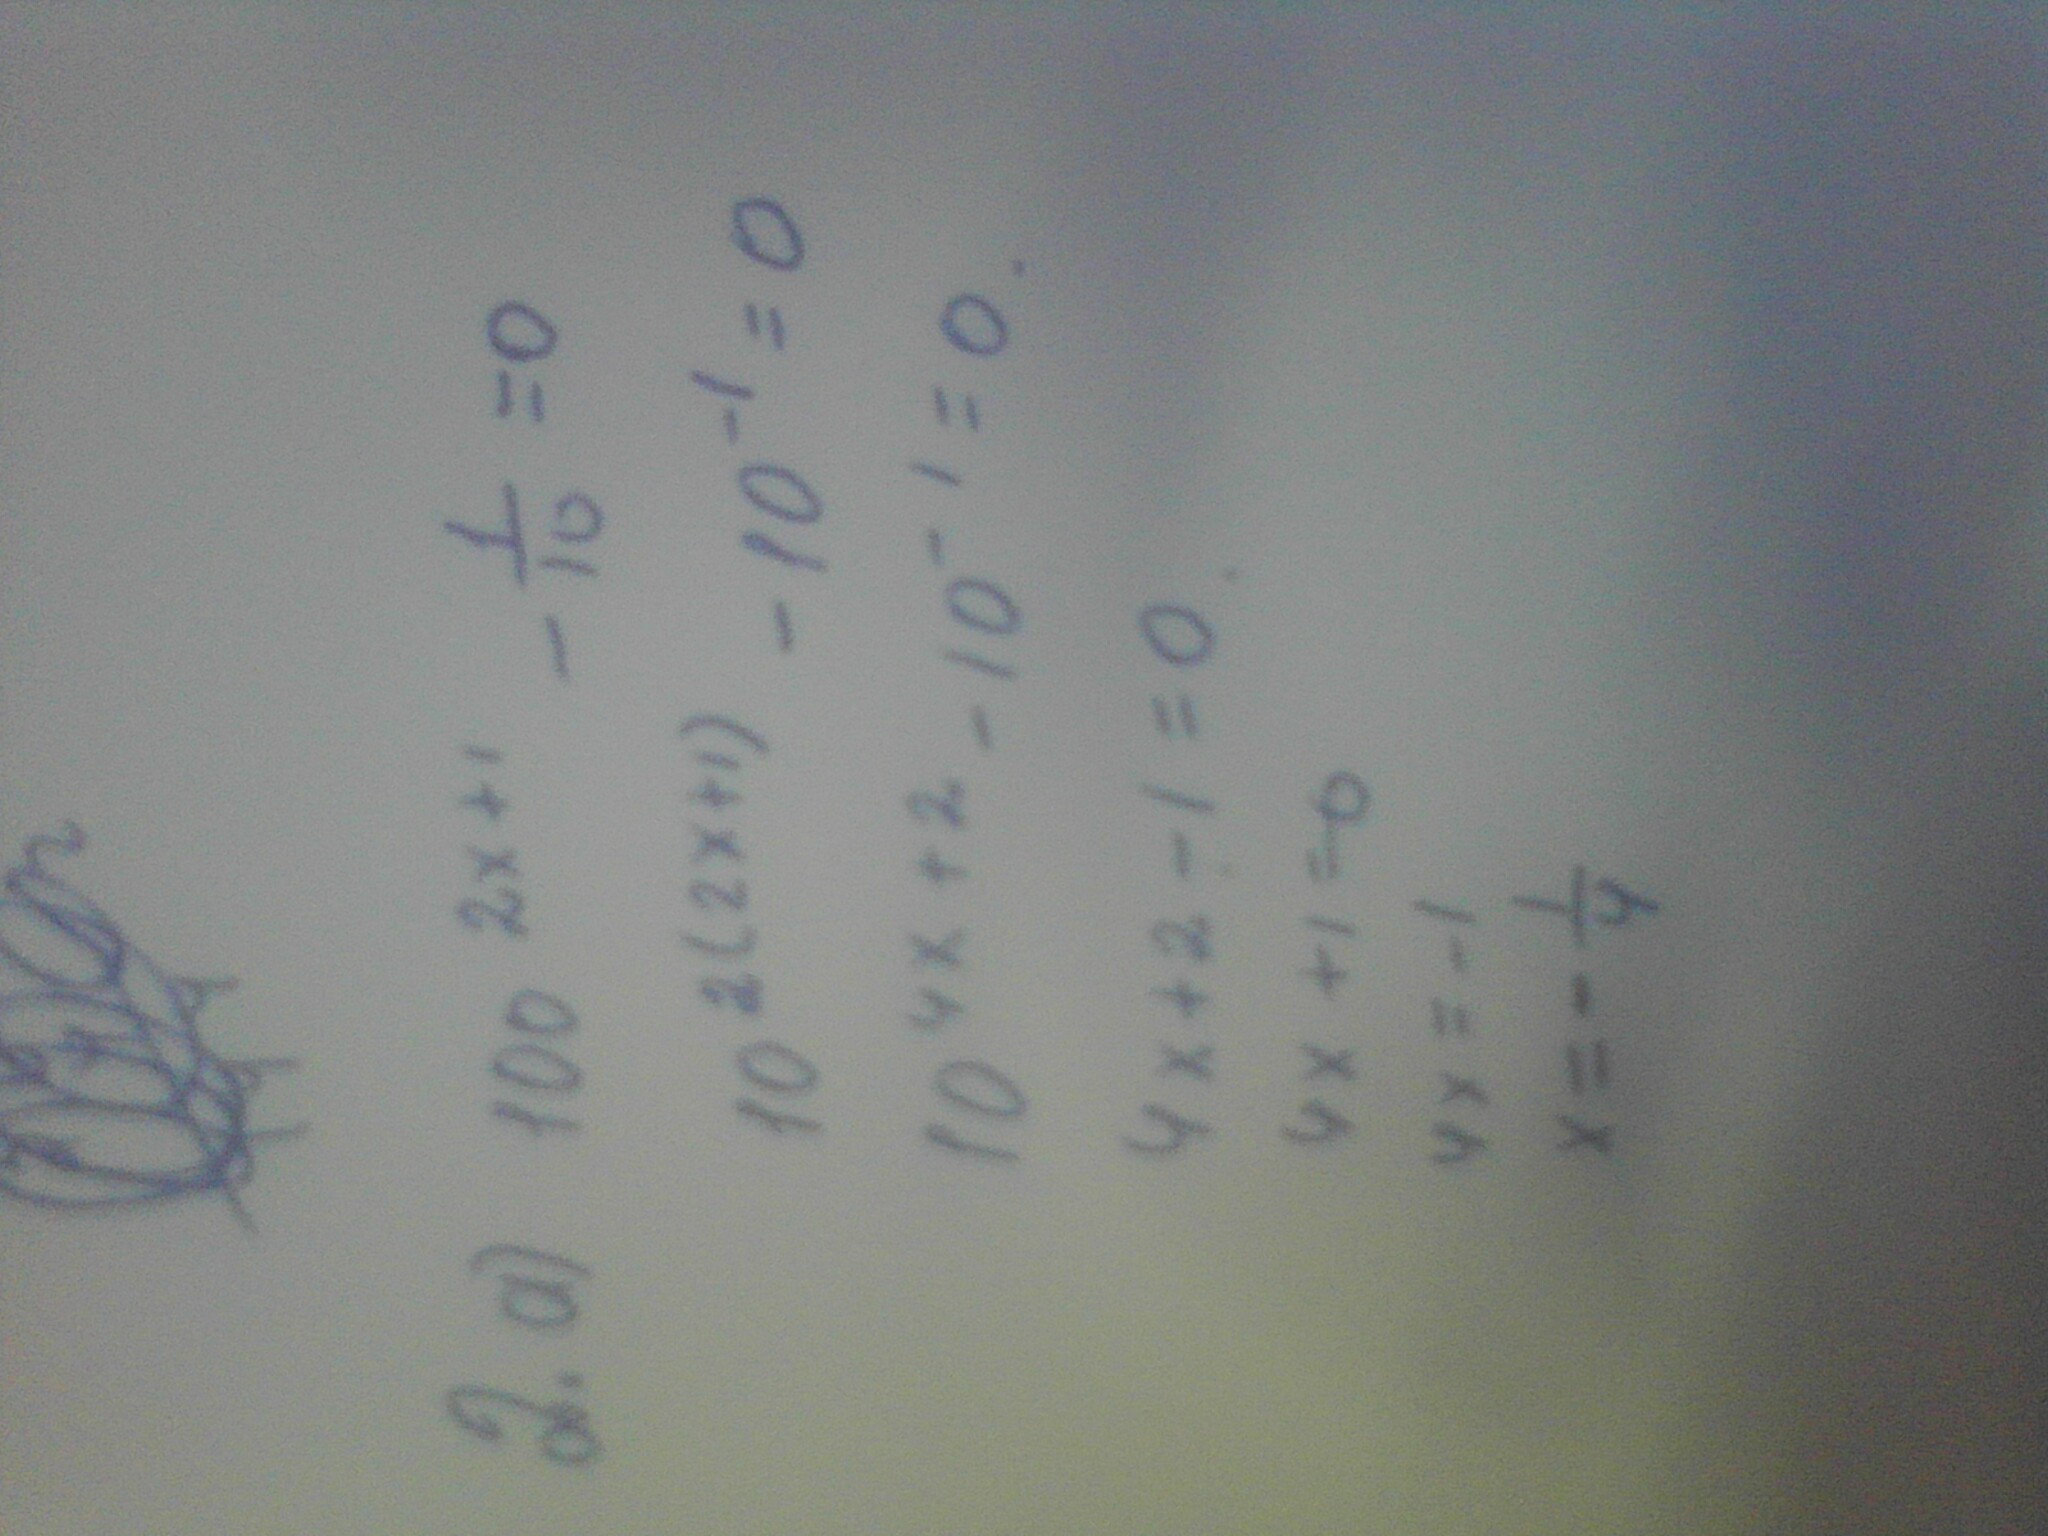 2. a) 100^{2x+1} - \frac{1}{10} = 0
10^{2(2x+1)} - 10^{-1} = 0
10^{4x+2} - 10^{-1} = 0.
4x+2-1=0.
4x+1=0
4x=-1
x=-\frac{1}{4}